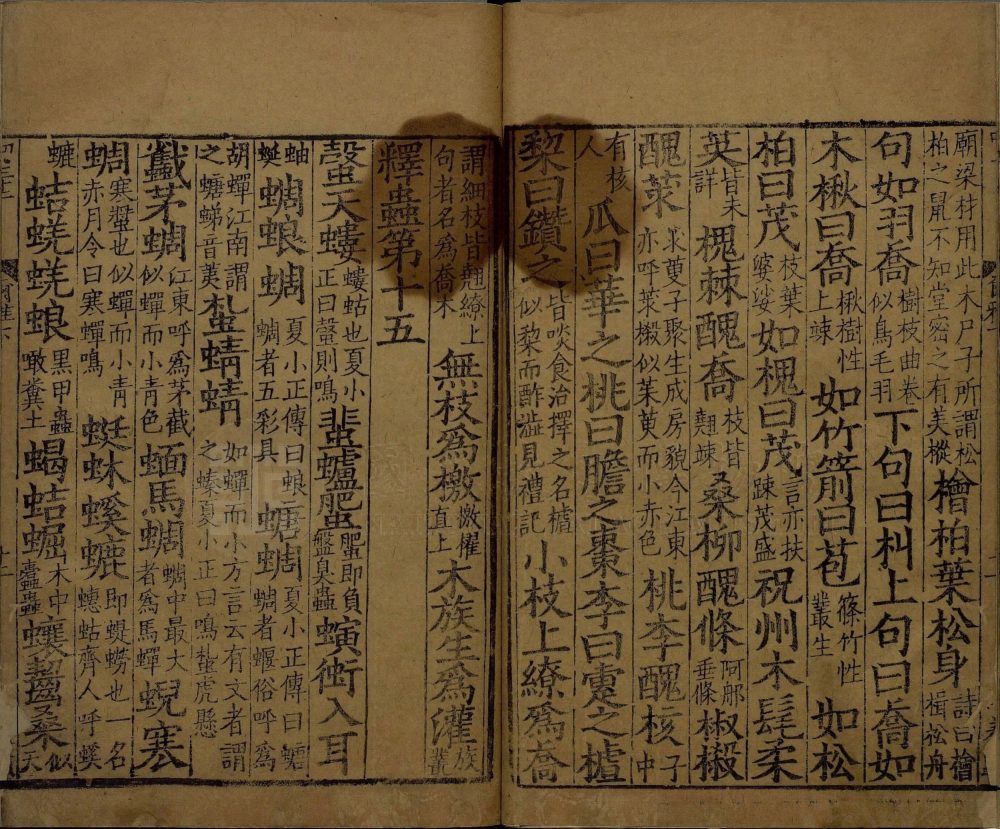 廟梁材用此木尸子所謂松
柏之鼠不知堂密之有美樅檜柏葉松身詩曰檜楫松舟
句如羽喬樹枝曲卷似鳥毛羽下句曰朻上句曰喬如
木楸曰喬楸樹性上竦如竹箭曰苞篠竹性叢生如松
柏曰茂枝葉婆娑如槐曰茂言亦扶踈茂盛祝州木髦柔
英皆未詳槐棘醜喬枝皆翹竦桑柳醜條阿那垂條椒樧
醜莍莍萸子聚生成房貌今江東亦呼莍樧似茱萸而小赤色桃李醜核子中
有核人瓜曰華之桃曰膽之棗李曰疐之樝
棃曰鑽之皆啖食治擇之名樝似棃而酢澁見禮記小枝上繚爲喬
謂細枝皆翹繚上句者名爲喬木無枝爲檄檄櫂直上木族生爲灌族叢
釋蟲第十五
螜天螻螻蛄也夏小正曰螜則鳴蜚蠦肥蜰即負盤臭蟲螾衝入耳
蚰蜒蜩蜋蜩夏小正傳曰蜋蜩者五彩具螗蜩夏小正傳曰螗蜩者蝘俗呼爲
胡蟬江南謂之螗蛦音荑蚻蜻蜻如蟬而小方言云有文者謂之螓夏小正曰鳴蚻虎懸
蠽茅蜩江東呼爲茅截似蟬而小青色蝒馬蜩蜩中最大者爲馬蟬蜺寒
蜩寒螿也似蟬而小青赤月令曰寒蟬鳴蜓蚞螇螰即蝭蟧也一名蟪蛄齊人呼螇
螰蛣蜣蜣蜋黑甲蟲噉糞土蝎蛣𧌑木中蠹蟲蠰齧桑似天